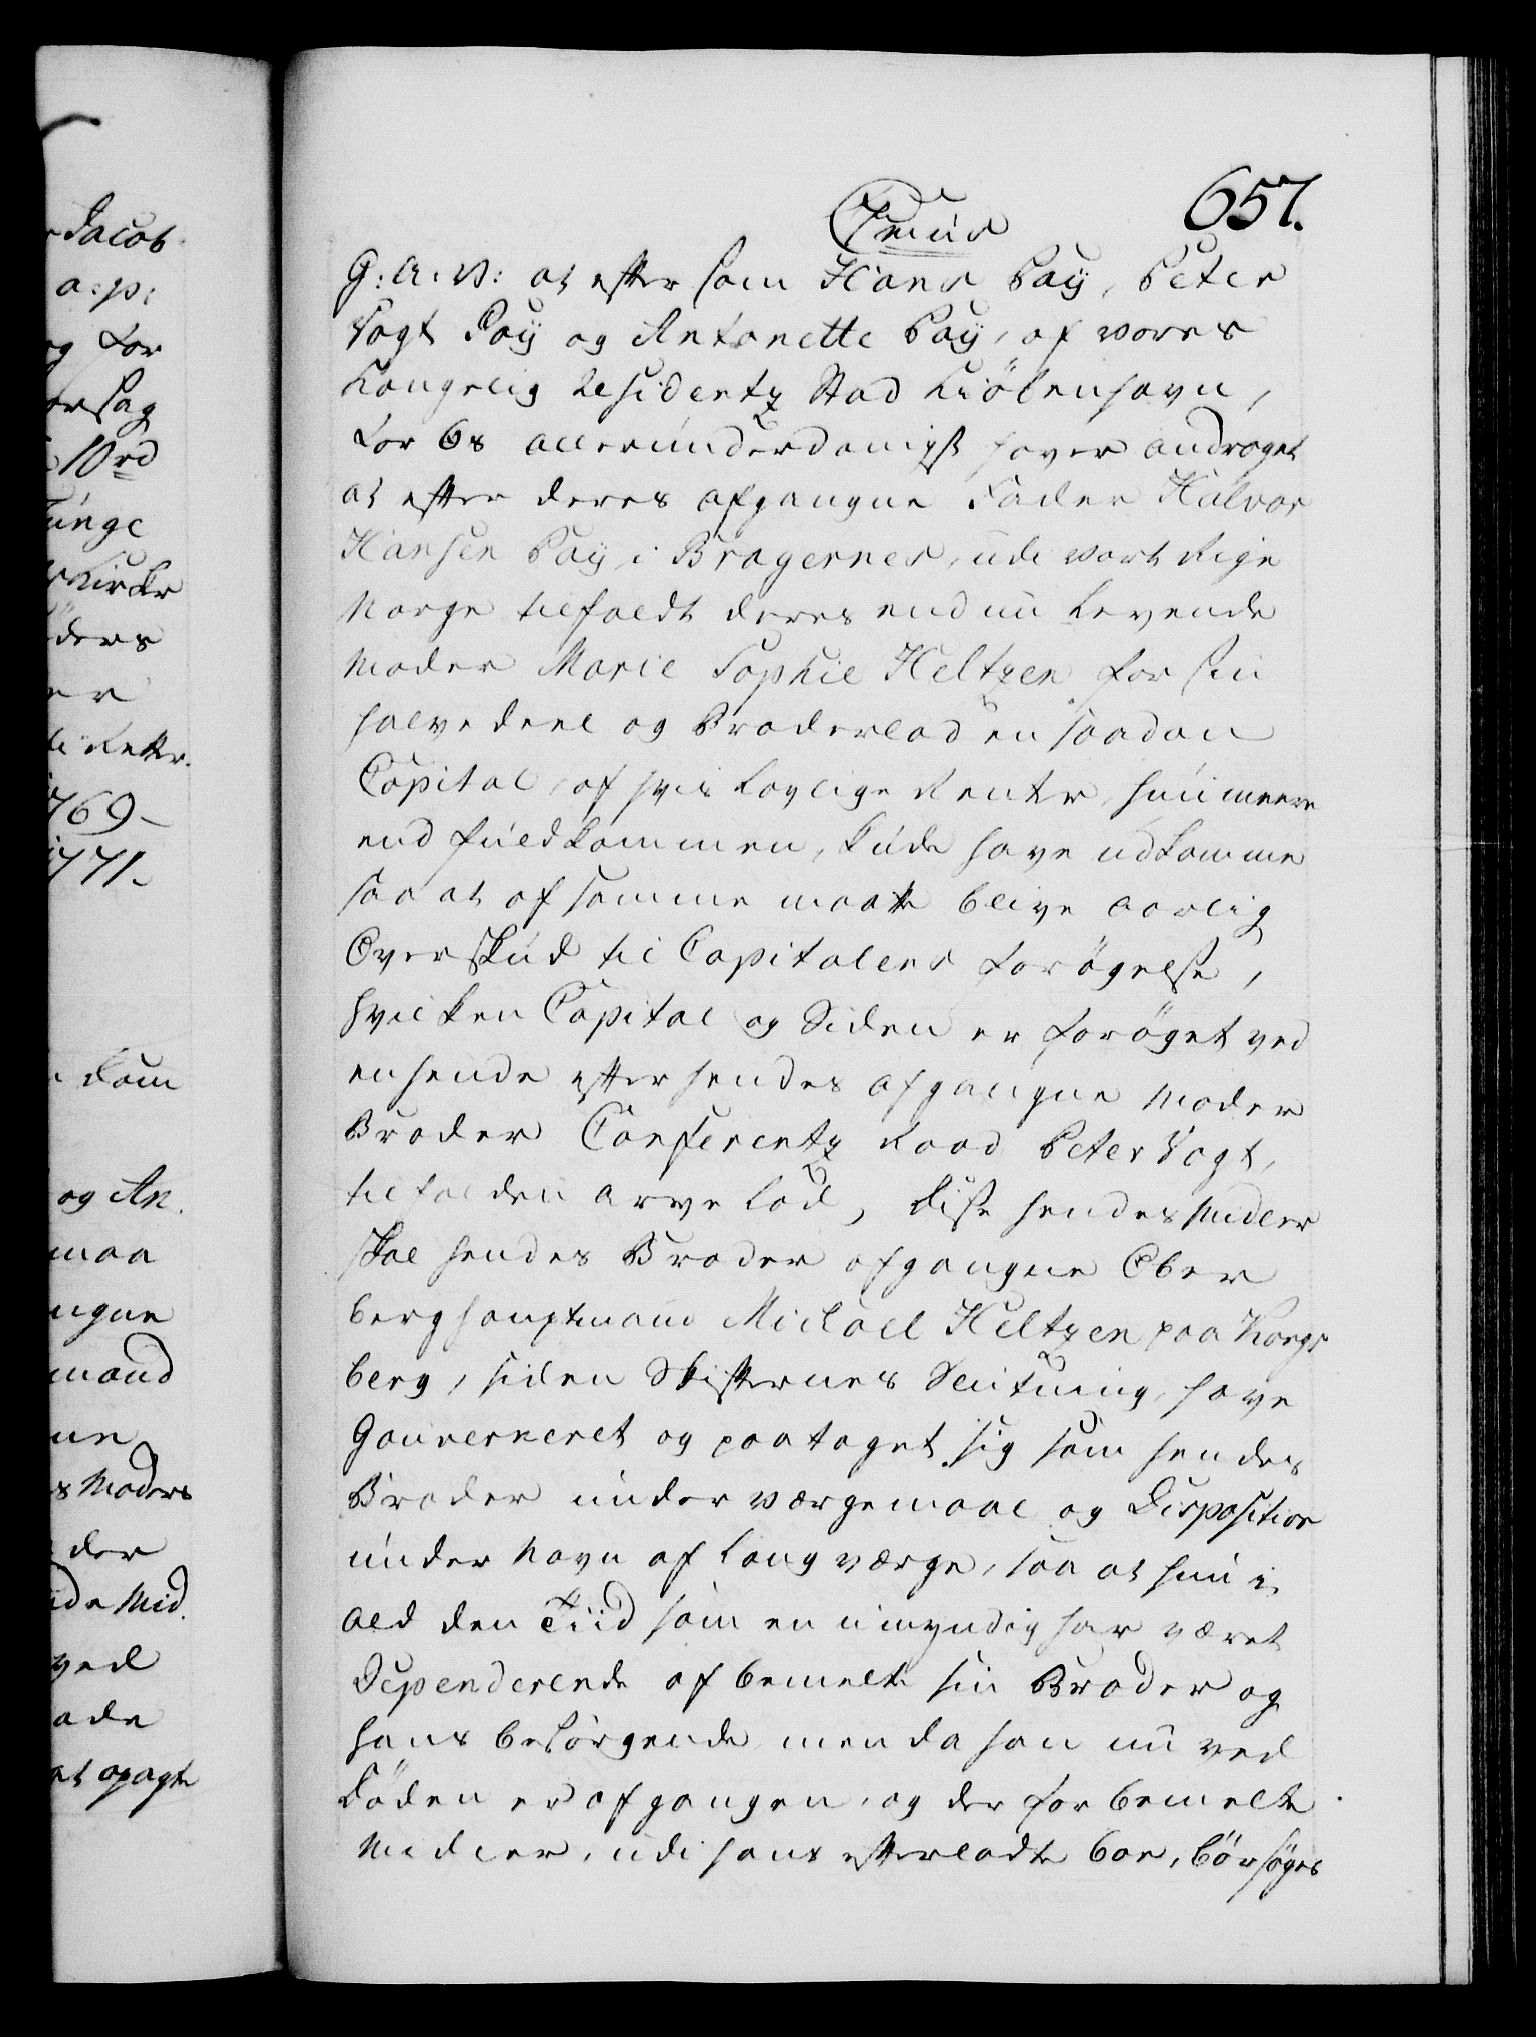 Jacob
a: p:
og for
10rd
unge
ders
er
769-
771.
og An.
maa
ngne
mand
ne
s Moders
der
Mid.
ved
ade
at opagte
657.
G: A: V: at eftersom Hans Paÿ, Peter
Vogt Paÿ og Antonette Paÿ, af vores
Kongelig Residentz Stad Kiöbenhavn,
for Os allerunderdanigst haver andraget
at efter deres afgangne Fader Halvor
Hansen Paÿ i Bragernes, udi vort Rige
Norge tilfaldt deres endnu levende
Moder Marie Sophie Heltzen for sin
halvedeel og Broderlod en saadan
Capital, af hvis lovlige Renter, hun meere
end fuldkommen, kude have udkomme
saa at af samme maatte blive aarlig
Overskud til Capitalens forögelse,
hvilken Capital og Siden er foröget ved
en hende efter hendes afgangne Moder
Broder Conferentz Raad Peter Vogt,
tilfalden Arve Lod, Disse hendes Midler
skal hendes Broder afgangne Ober
berghauptmand Michael Heltzen paa Kongs
berg, siden Skifternes Slutning, have
Gouverneret og paataget sig som hendes
Broder under værgemaal og Disposition
under Navn af Laugværge, saa at hun i
ald den Tiid som en umyndig har været
Dependerende af bemelte sin Broder og
hans besörgende men da han nu ved
Döden er afgangen, og der for bemelte
Midler, udi hans efterladte Boe, bör söges